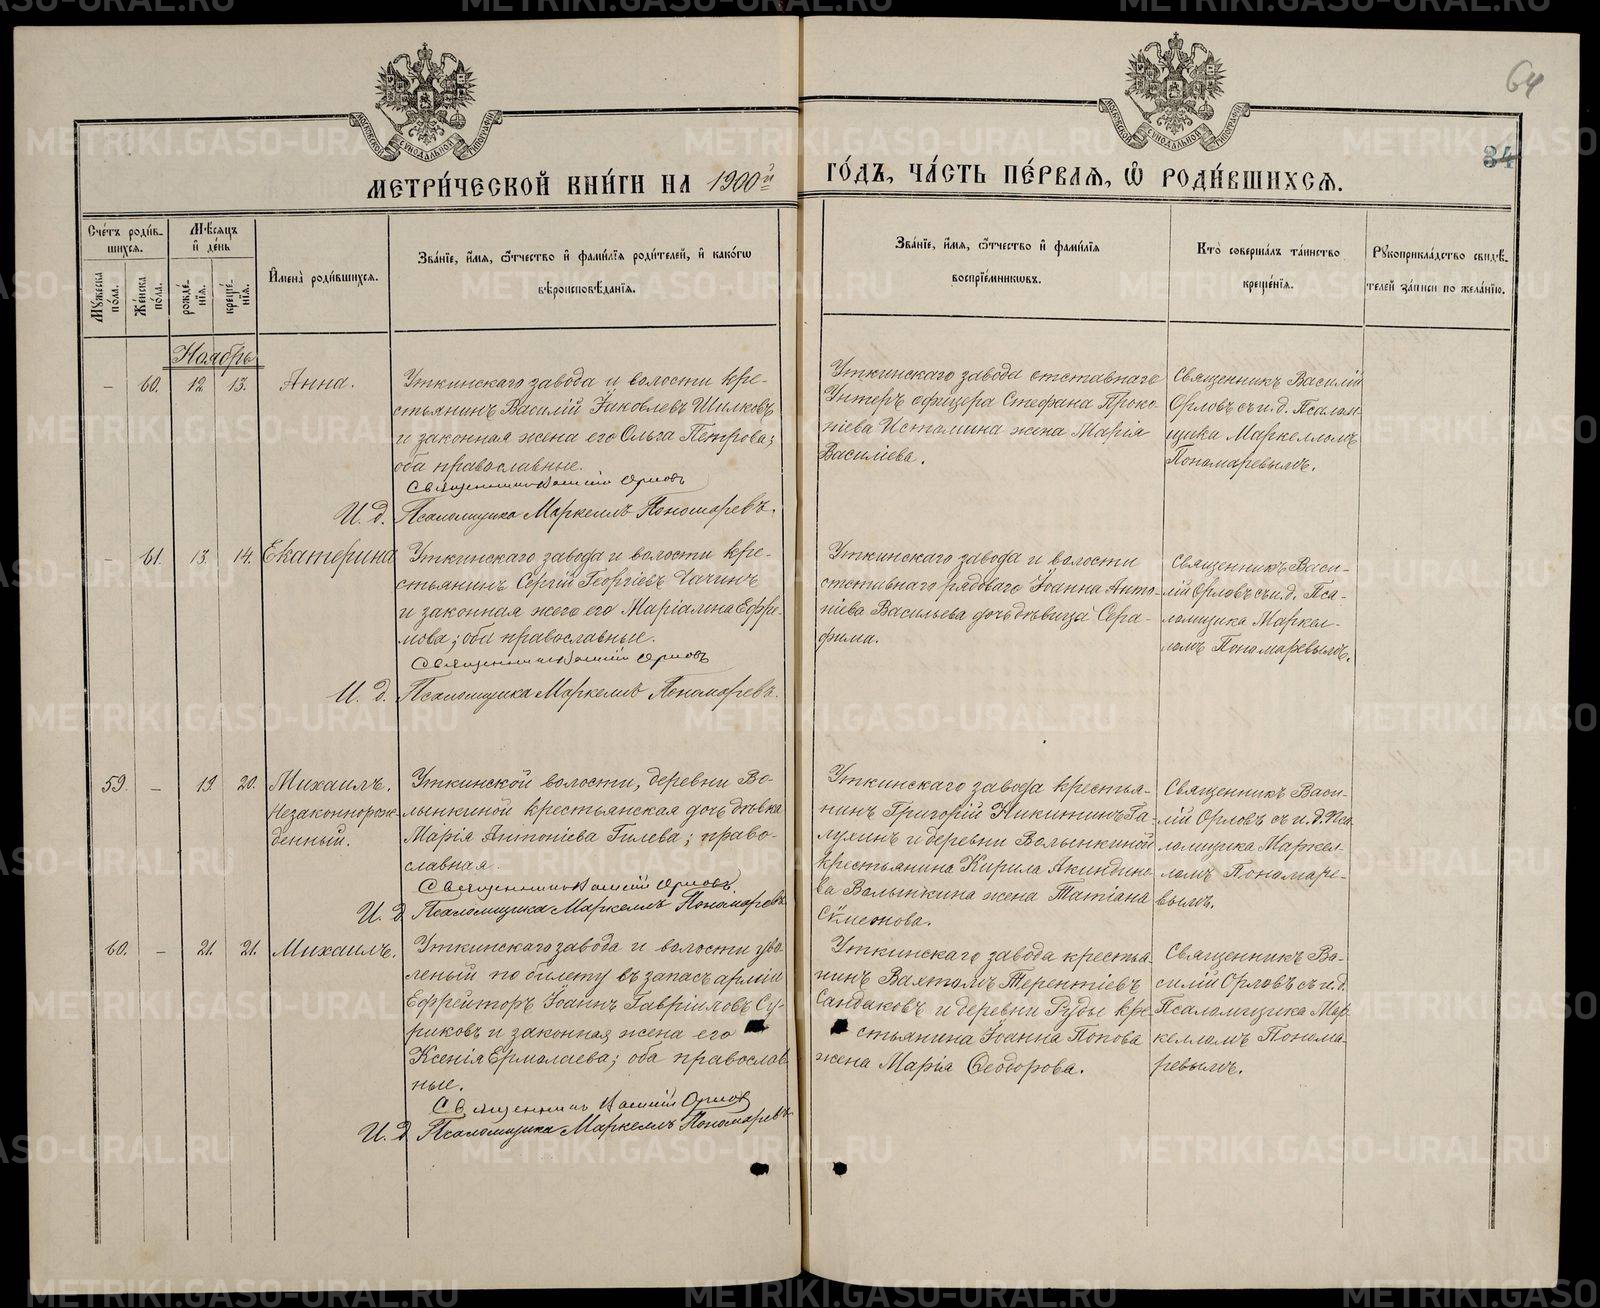 64
34
МОСКОВСКОЙ СѴНОДАЛЬНОЙ ТИПОГРАФІИ
МОСКОВСКОЙ СѴНОДАЛЬНОЙ ТИПОГРАФІИ
МЕТРИ́ЧЕСКОЙ КНИ́ГИ НА 1900й
ГО́ДЪ, ЧА́СТЬ ПЕ́РВАЯ, Ѡ РОДИ́ВШИХСЯ.
Сче́тъ роди́в-
шихся.
Мꙋ́жеска по́ла.
Же́нска по́ла.
Мѣ́сяцъ
и҆ де́нь
рожде́-
нїѧ.
креще́-
нїѧ.
И҆мена̀ роди́вшихсѧ.
Зва́нїе, и҆́мѧ, ѻ҆́тчество и҆ фами́лїѧ роди́телей, и҆ како́гѡ
вѣроисповѣ́данїѧ.
Зва́нїе, и҆́мѧ, ѻ҆́тчество и҆ фами́лїѧ
воспрїе́мниковъ.
Кто̀ соверша́лъ та́инство
креще́нїѧ.
Рꙋкоприкла́дство свидѣ́-
телей за́писи по жела́нїю.
Ноябрь
– 60. 12. 13. Анна.
Уткинскаго завода и волости кре-
стьянинъ Василій Іаковлевъ Шилковъ
и законная жена его Ольга Петрова;
оба православные.
Священникъ Василій Орловъ
И. д. Псаломщика Маркеллъ Пономаревъ.
Уткинскаго завода отставнаго
Унтеръ офицера Стефана Проко-
піева Истомина жена Марія
Василіева.
Священникъ Василій
Орловъ съ и. д. Псалом-
щика Маркелломъ
Пономаревымъ.
– 61. 13. 14. Екатерина
Уткинскаго завода и волости кре-
стьянинъ Сергій Георгіевъ
и законная жего его Маріамна Ефре-
мова; оба православные.
Священникъ Василій Орловъ
И. д. Псаломщика Маркеллъ Пономаревъ.
Уткинскаго завода и волости
отставнаго рядоваго Іоанна Анто-
ніева Васильева дочь дѣвица Сера-
фима.
Священникъ Васи-
лій Орловъ съ и. д. Пса-
ломщика Маркел-
ломъ Пономаревымъ.
59. – 19. 20. Михаилъ.
Незаконнорож-
денный.
Уткинской волости, деревни Во-
лынкиной крестьянская дочь дѣвка
Марія Антоніева Гилева; право-
славная.
Священникъ Василій Орловъ.
И. д. Псаломщика Маркеллъ Пономаревъ
Уткинскаго завода крестья-
нинъ Григорій Никитинъ Га-
лухинъ и деревни Волынкиной
крестьянина Кирила Акиндино-
ва Волынкина жена Татіана
Сѵмеонова.
Священникъ Васи-
лій Орловъ съ и. д. Пса-
ломщика Маркел-
ломъ Пономаре-
вымъ.
60. – 21. 21. Михаилъ.
Уткинскаго завода и волости уво-
леный по билету въ запасъ арміи
Ефрейторъ Іоаннъ Гавріиловъ Су-
риковъ и законная жена его
Ксенія Ермолаева; оба православ
ные.
Священникъ Василій Орловъ
И. д. Псаломщика Маркеллъ Пономаревъ
Уткинскаго завода крестья
нинъ Вахтомъ Терентіевъ
Сандаковъ и деревни Руды кре
стьянина Іоанна Попова
жена Марія Ѳеодорова.
Священникъ Ва-
силій Орловъ съ и. д.
Псаломщика Мар-
келломъ Понома-
ревымъ.
METRIKI.GASO-URAL.RU